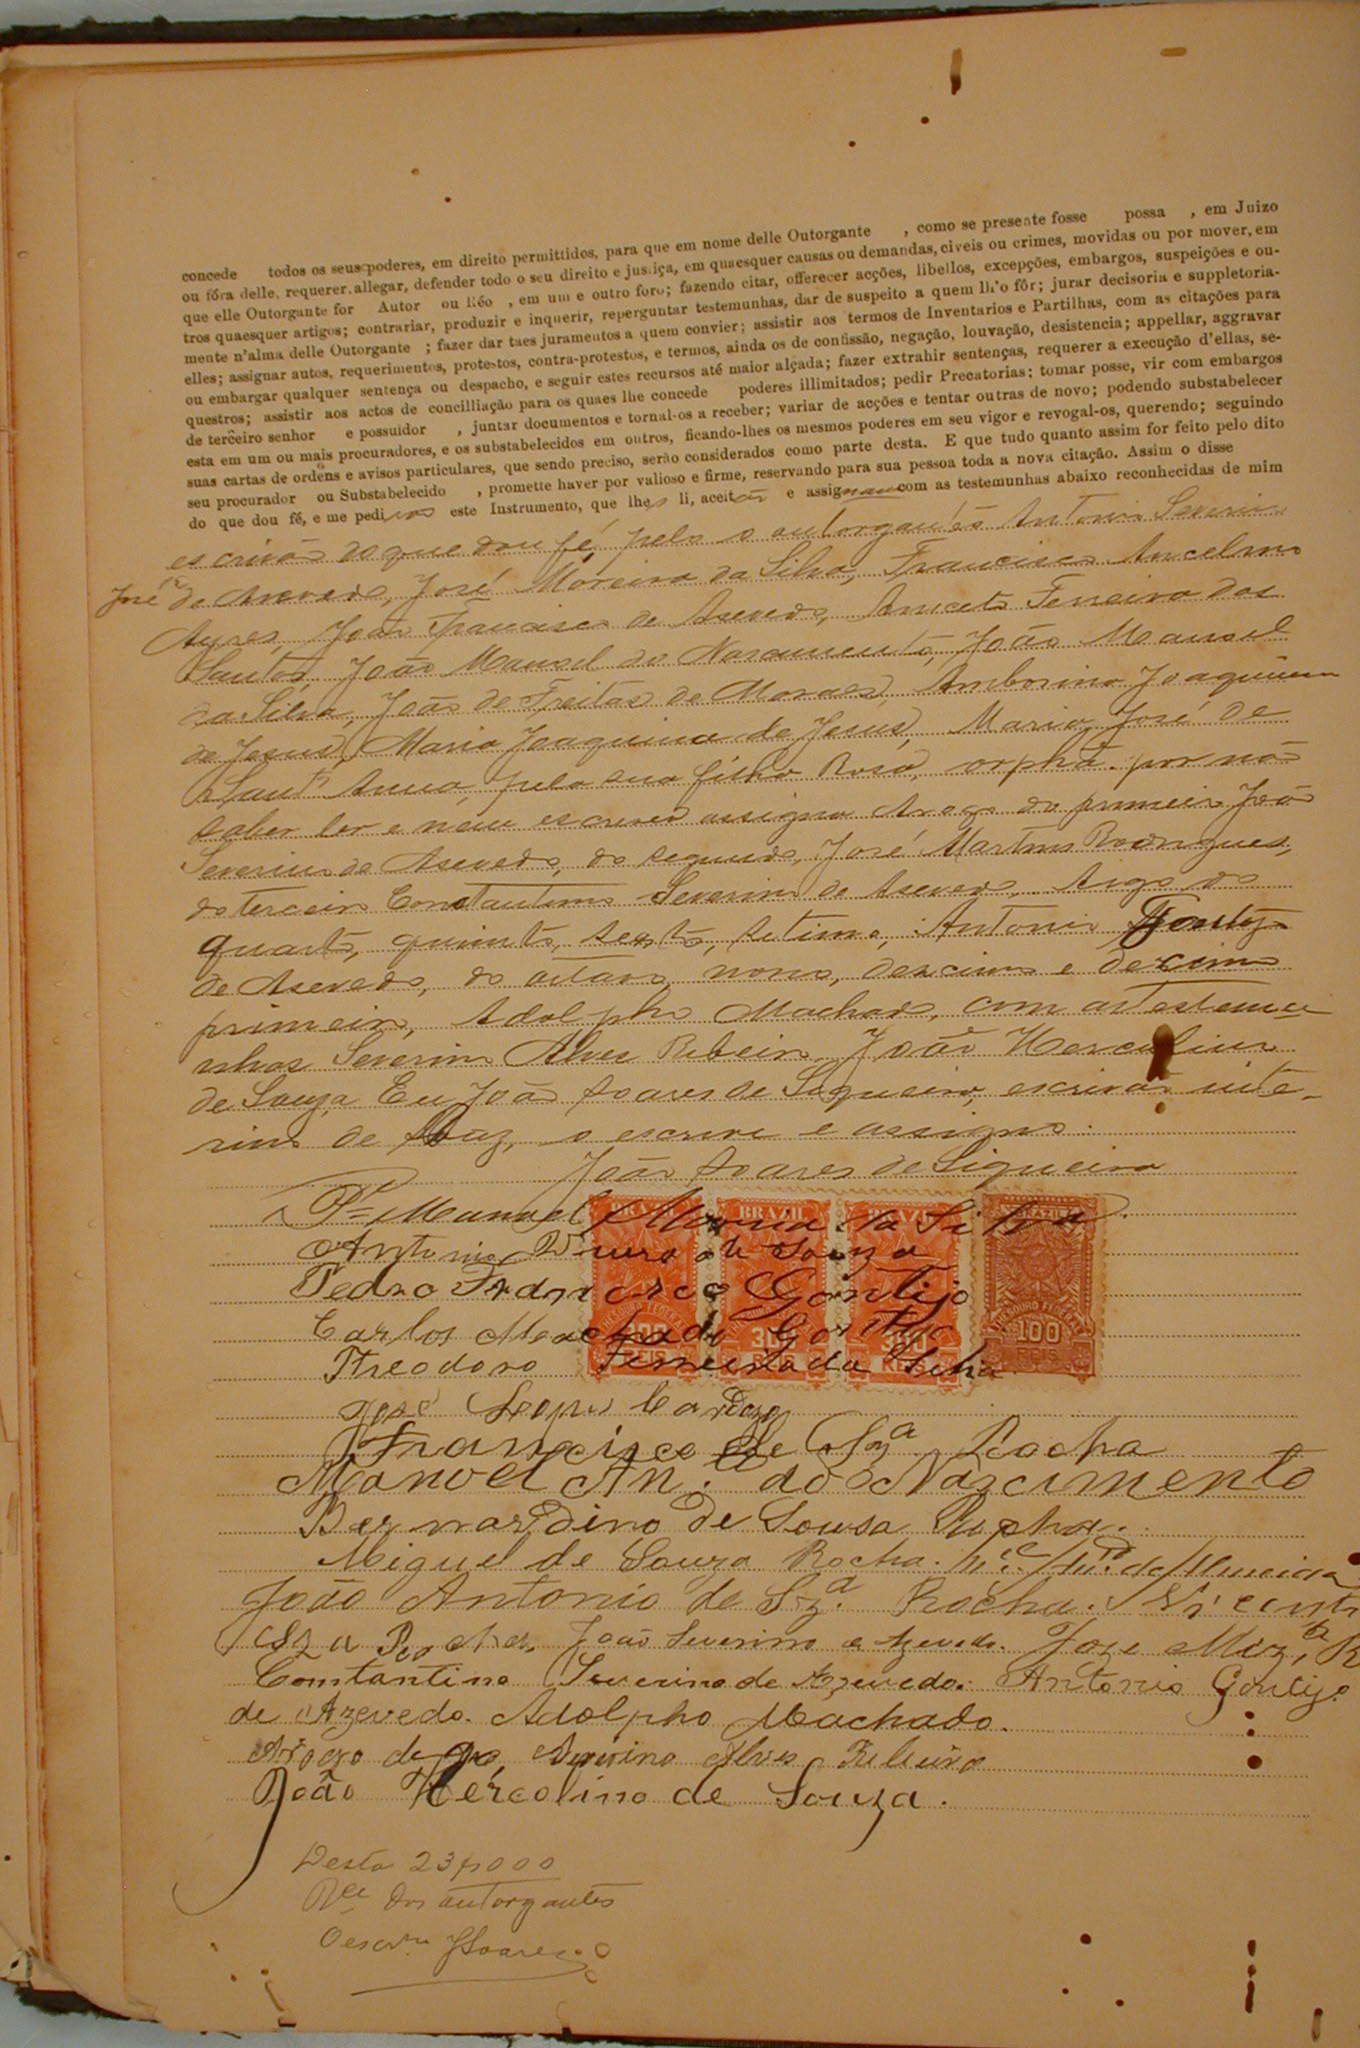 concede todos os seus poderes, em direito permittidos, para que em nome delle Outorgante , como se presente fosse possa , em Juizo
ou fóra delle, requerer, allegar, defender todo o seu direito e justiça, em quaesquer causas ou demandas, civeis ou crimes, movidas ou por mover, em
que elle Outorgante for Autor ou Réo , em um e outro foro; fazendo citar, offerecer acções, libellos, excepções, embargos, suspeições e ou-
tros quaesquer artigos; contrariar, produzir e inquerir, reperguntar testemunhas, dar de suspeito a quem lh'o fôr; jurar decisoria e suppletoria-
mente n'alma delle Outorgante ; fazer dar taes juramentos a quem convier; assistir aos termos de Inventarios e Partilhas, com as citações para
elles; assignar autos, requerimentos, protestos, contra-protestos, e termos, ainda os de confissão, negação, louvação, desistencia; appellar, aggravar
ou embargar qualquer sentença ou despacho, e seguir estes recursos até maior alçada; fazer extrahir sentenças, requerer a execução d'ellas, se-
questros; assistir aos actos de concilliação para os quaes lhe concede poderes illimitados; pedir Precatorias: tomar posse, vir com embargos
de terceiro senhor e possuidor , juntar documentos e tornal-os a receber; variar de acções e tentar outras de novo; podendo substabelecer
esta em um ou mais procuradores, e os substabelecidos em outros, ficando-lhes os mesmos poderes em seu vigor e revogal-os, querendo; seguindo
suas cartas de ordens e avisos particulares, que sendo preciso, serão considerados como parte desta. E que tudo quanto assim for feito pelo dito
seu procurador ou Substabelecido , promette haver por valioso e firme, reservando para sua pessoa toda a nova citação. Assim o disse
do que dou fé, e me pediram este Instrumento, que lhes li, aceitão e assignam com as testemunhas abaixo reconhecidas de mim
escrivão do que dou fé, pelo o outorgantes Antonio Severino
José de Azevedo, José Moreira da Silva, Francisco Ancelmo
Ayres, João Francisco de Asevedo, Aniceto Ferreira dos
Santos, João Manoel do Nascimento, João Manoel
da Silva, João de Freitas de Moraes, Ambrosina Joaquina
de Jesus, Maria Joaquina de Jesus, Maria José de
Sant'Anna, pela sua filha Rosa, orphã por não
saber ler e nem escrever assigna Arogo do primeiro João
Severino de Asevedo, do segundo, José Martins Rodrigues,
do terceiro Constantino Severino de Asevedo, Arogo do
quarto, quinto, sexto, setimo, Antonio Gontijo
de Asevedo, do oitavo, nono, decimo e decimo
primeiro, Adolpho Machado, com as testemu
nhas Severino Alves Ribeiro, João Herculino
de Souza Eu João Soares de Siqueira, escrivão inte-
rino de Paz, o escrevi e assigno.
João Soares de Siqueira
Pe Manoel Moreira da Silva.
Antonio de Souza
Pedro Francisco Gontijo
Carlos Machado Gontijo
Theodoro Ferreira da Silva
BRAZIL BRAZIL BRAZIL BRAZIL
THESOURO FEDERAL
300 300 300 100
REIS REIS REIS REIS
José Lopes Cardozo
Francisco de Sza Rocha
Manoel An. do Nascimento
Bernardino de Sousa Rocha.
Miguel de Souza Rocha. de Almeida
João Antonio de Sza. Rocha. Vicente
Sza Rocha, João Severino de Azevedo. Joze
Constantino Severino de Azevedo. Antonio Gontijo
de Azevedo. Adolpho Machado.
Arogo de Severino Alves Ribeiro
João Hercolino de Souza.
Desta 23$000
Rce dos outorgantes
O escrvm JSoares